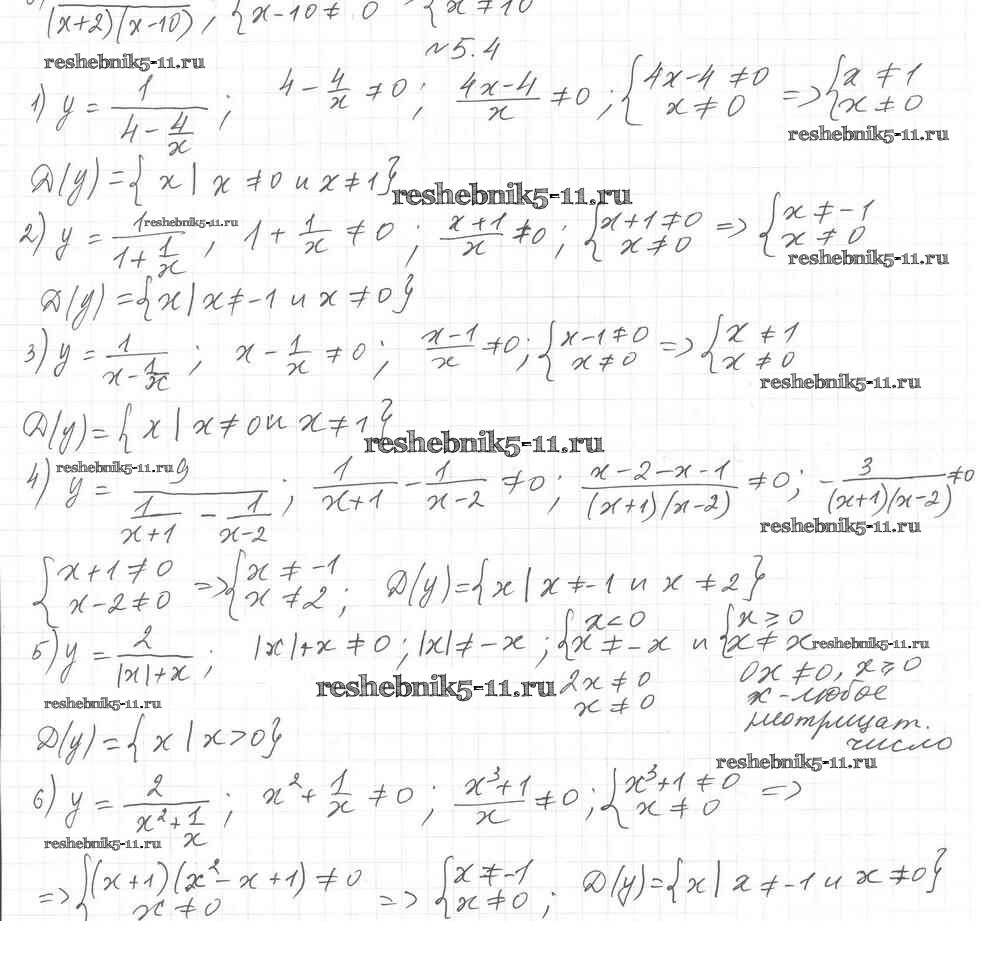 (x+2)(x-10) ; { x-10≠0 { x≠10
reshebnik5-11.ru
№5.4
1) y = 1/(4 - 4/x) ; 4 - 4/x ≠ 0 ; (4x-4)/x ≠ 0 ; { 4x-4≠0 x≠0 => { x≠1 x≠0
reshebnik5-11.ru
Д(y) = { x | x≠0 и x≠1}
reshebnik5-11.ru
reshebnik5-11.ru
2) y = 1/(1 + 1/x) , 1 + 1/x ≠ 0 ; (x+1)/x ≠ 0 ; { x+1≠0 x≠0 => { x≠-1 x≠0
reshebnik5-11.ru
Д(y) = {x | x≠-1 и x≠0}
3) y = 1/(x - 1/x) ; x - 1/x ≠ 0 ; (x-1)/x ≠ 0 ; { x-1≠0 x≠0 => { x≠1 x≠0
reshebnik5-11.ru
Д(y) = { x | x≠0 и x≠1}
reshebnik5-11.ru
reshebnik5-11.ru
4) y = 9/(1/(x+1) - 1/(x-2)) ; 1/(x+1) - 1/(x-2) ≠ 0 ; (x-2-x-1)/((x+1)(x-2)) ≠ 0 ; - 3/((x+1)(x-2)) ≠ 0
reshebnik5-11.ru
{ x+1≠0 x-2≠0 => { x≠-1 x≠2 ; Д(y) = {x | x≠-1 и x≠2}
5) y = 2/(|x|+x) ; |x|+x≠0 ; |x|≠-x ; { x<0 x≠-x и { x≥0 x≠x
reshebnik5-11.ru
2x≠0 0x≠0, x≥0
reshebnik5-11.ru
x≠0 x-любое
reshebnik5-11.ru
неотрицат.
Д(y) = { x | x>0}
число
reshebnik5-11.ru
6) y = 2/(x² + 1/x) ; x² + 1/x ≠ 0 ; (x³+1)/x ≠ 0 ; { x³+1≠0 x≠0 =>
reshebnik5-11.ru
=> { (x+1)(x²-x+1)≠0 x≠0 => { x≠-1 x≠0 ; Д(y) = {x | x≠-1 и x≠0}